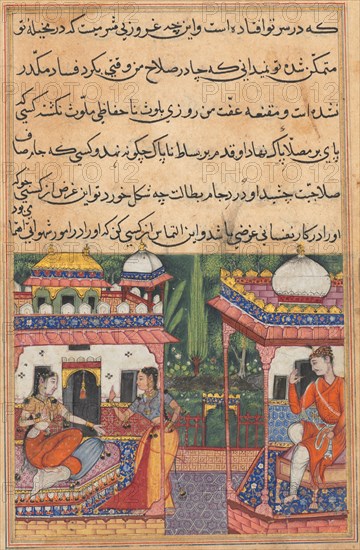 که در سر تو افتاده است و این چه غرور بی ثمریست که در مخیله تو
متمکن شده تو نمیدانی که چادر صلاح من وقتی بگرد فساد مکدر
نشده است و مقنعه عفت من روزی بلوث ناحفاظی ملوث نگشته کسی که
پای بر مصلا پاک نهاد او قدم بر بساط ناپاک چگونه نهد و کسی که جام صاف
صلاحیت چشید او درد جام بطالت چه شکل خورد تواند غرض از کسی جو که
او را در کار نفسانی غرضی باشد و این التماس از کسی کن که او را در امور شهوانی